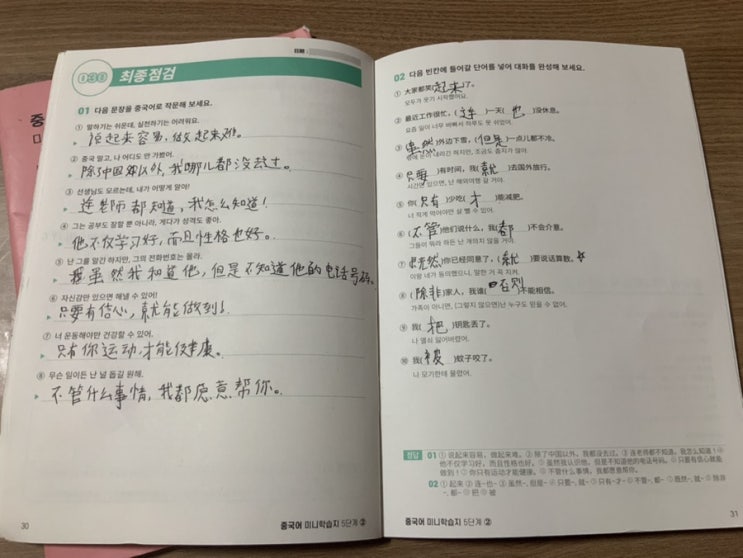 030 최종점검
01 다음 문장을 중국어로 작문해 보세요.
① 말하기는 쉬운데, 실천하기는 어려워요.
说起来容易，做起来难。
② 중국 말고, 나 어디도 안 가봤어.
除了中国以外，我哪儿都没去过。
③ 선생님도 모르는데, 내가 어떻게 알아!
连老师都知道，我怎么知道！
④ 그는 공부도 잘할 뿐 아니라, 게다가 성격도 좋아.
他不仅学习好，而且性格也好。
⑤ 난 그를 알긴 하지만, 그의 전화번호는 몰라.
虽然我知道他，但是不知道他的电话号码。
⑥ 자신감만 있으면 해낼 수 있어!
只要有信心，就能做到！
⑦ 너 운동해야만 건강할 수 있어.
只有你运动，才能健康。
⑧ 무슨 일이든 난 널 돕길 원해.
不管什么事情，我都愿意帮你。
30
중국어 미니학습지 5단계 ②
02 다음 빈칸에 들어갈 단어를 넣어 대화를 완성해 보세요.
① 大家都笑(起来)了。
모두가 웃기 시작했어요.
② 最近工作很忙，(连)一天(也)没休息。
요즘 일이 너무 바빠서 하루도 못 쉬었어.
③ (虽然)外边下雪，(但是)一点儿都不冷。
밖에 눈이 내리긴 하지만, 조금도 춥지가 않아.
④ (只要)有时间，我(就)去国外旅行。
시간만 있으면, 난 해외여행 갈 거야.
⑤ 你(只有)少吃(才)能减肥。
너 적게 먹어야만 살 뺄 수 있어.
⑥ (不管)他们说什么，我(都)不会介意。
그들이 뭐라 하든 난 개의치 않을 거야.
⑦ (既然)你已经同意了，(就)要说话算数。
이왕 네가 동의했으니, 말한 거 꼭 지켜.
⑧ (除非)家人，我谁(否则)不能相信。
가족이 아니면, (그렇지 않으면)난 누구도 믿을 수 없어.
⑨ 我(把)钥匙丢了。
나 열쇠 잃어버렸어.
⑩ 我(被)蚊子咬了。
나 모기한테 물렸어.
정답 01 ① 说起来容易，做起来难。② 除了中国以外，我都没去过。③ 连老师都不知道，我怎么知道！④
他不仅学习好，而且性格也好。⑤ 虽然我认识他，但是不知道他的电话号码。⑥ 只要有信心就能
做到！⑦ 你只有运动才能健康。⑧ 不管什么事情，我都愿意帮你。
02 ① 起来 ② 连~也~ ③ 虽然~，但是~ ④ 只要~，就~ ⑤ 只有~才~ ⑥ 不管~，都~ ⑦ 既然~，就~ ⑧ 除非
~，都~ ⑨ 把 ⑩ 被
중국어 미니학습지 5단계 ②
31